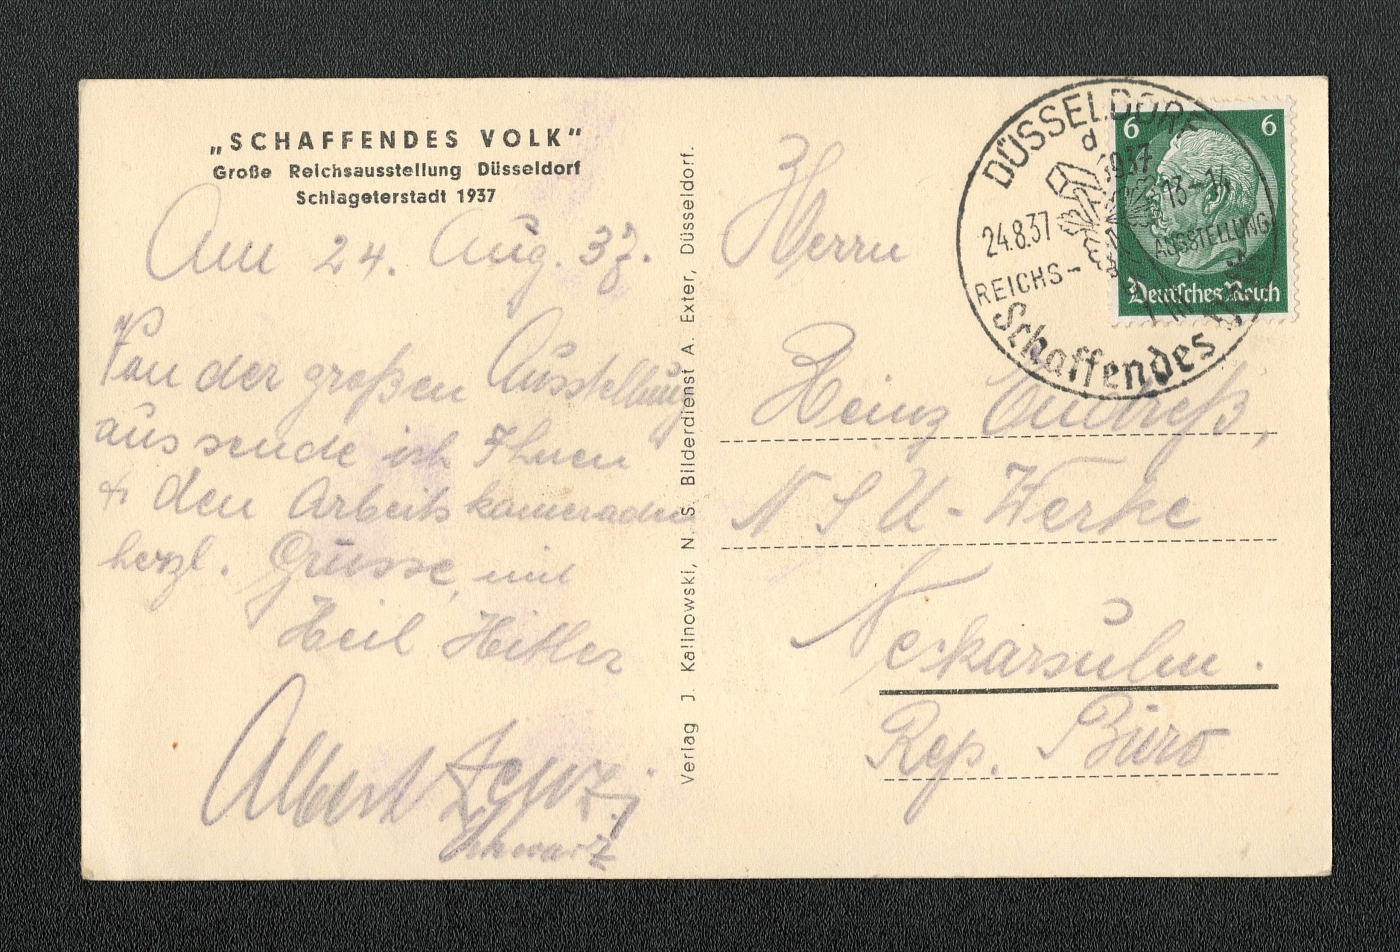 „SCHAFFENDES VOLK"
Große Reichsausstellung Düsseldorf
Schlageterstadt 1937
Am 24. Aug. 37.
Von der großen Ausstellung
aus sende ich Ihnen
& den Arbeitskameraden
herzl. Grüsse, mit
Heil Hitler
Albert
Schwarz
Verlag J. Kalinowski, N. S. Bilderdienst A. Exter, Düsseldorf.
DÜSSELDORF
d
1937
24.8.37 13-14
REICHS- AUSSTELLUNG
Schaffendes
6 6
Deutsches Reich
Herrn
Heinz
NSU-Werke
Neckarsulm.
Rep. Büro